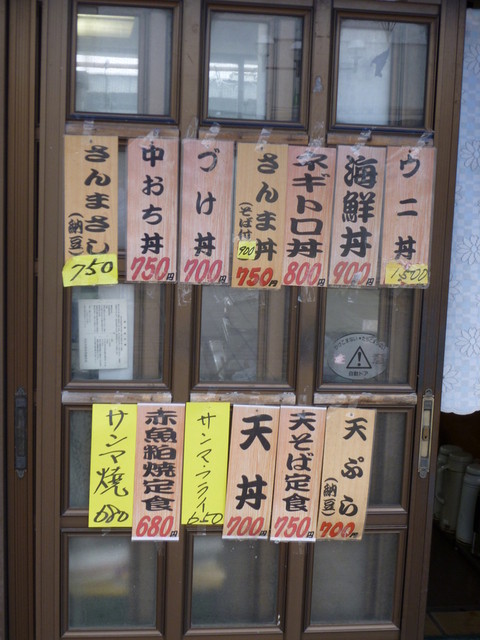 ウニ丼
1,500
海鮮丼
900円
ネギトロ丼
800円
さんま丼
(そば付)
900
750円
づけ丼
700円
中おち丼
750円
さんまさし
(納豆)
750
天ぷら
(納豆)
700円
天そば定食
750円
天丼
700円
サンマフライ
650
赤魚粕焼定食
680円
サンマ焼
680
自動ドア